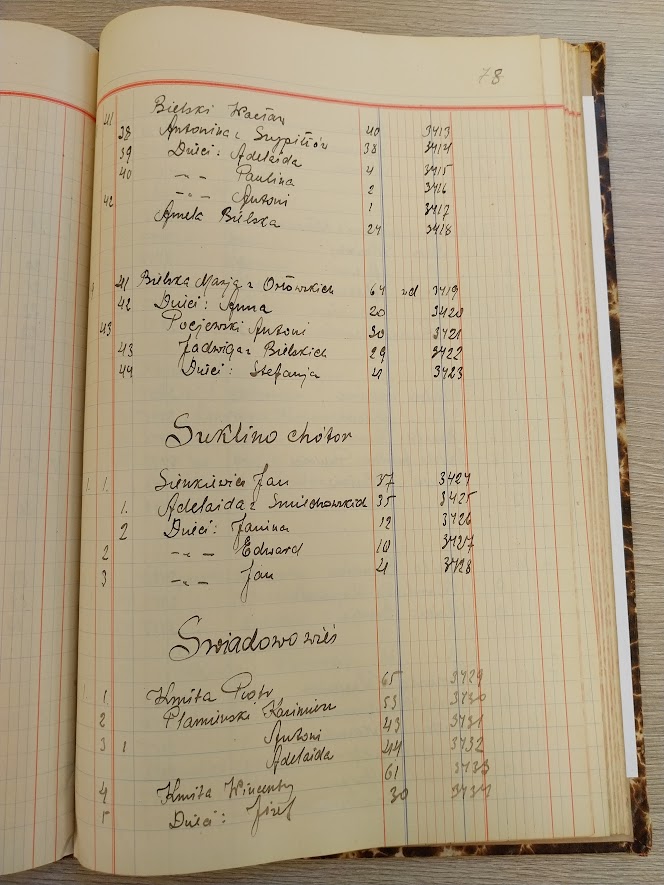 78
41 Bielski Wacław 40 3413
38 Antonina z Szypiłłów 38 3414
39 Dzieci: Adelaida 4 3415
40 -"- Paulina 2 3416
-"- Antoni 1 3417
42 Amelk Bielska 24 3418
41 Bielska Marja z Orłowskich 64 wd 3419
42 Dzieci: Anna 20 3420
43 Pocjewski Antoni 30 3421
43 Jadwiga z Bielskich 29 3422
44 Dzieci: Stefanja 4 3423
Suklino chótor
1. 1. Sienkiewicz Jan 37 3424
1. Adelaida z Smiechowskich 35 3425
2 Dzieci: Janina 12 3426
2 -"- Edward 10 3427
3 -"- Jan 4 3428
Swiadowo wieś
1 1 Kmita Piotr 65 3429
2 Plamieński Kazimierz 53 3430
3 Antoni 43 3431
1 Adelaida 44 3432
4 Kmita Wincenty 61 3433
5 Dzieci: Józef 30 3434